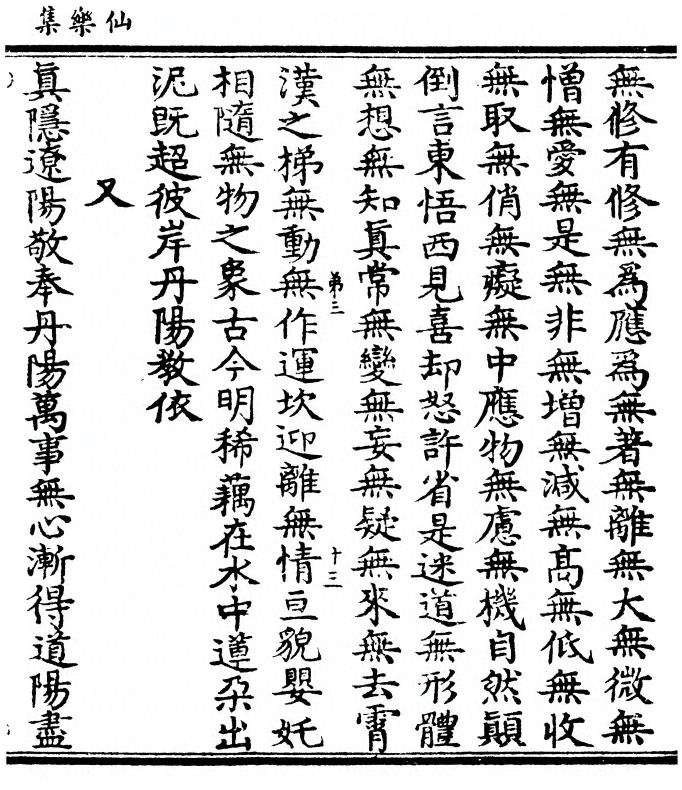 仙樂集
無修有修無為應為無著無離無大無微無
憎無愛無是無非無增無減無高無低無收
無取無俏無癡無中應物無慮無機自然顛
倒言東悟西見喜却怒許省是迷道無形體
無想無知真常無變無妄無疑無來無去霄
第三 十三
漢之梯無動無作運坎迎離無情亘貌嬰奼
相隨無物之象古今明稀藕在水中蓮朶出
泥既超彼岸丹陽教依
又
真隱遼陽敬奉丹陽萬事無心漸得道陽盡